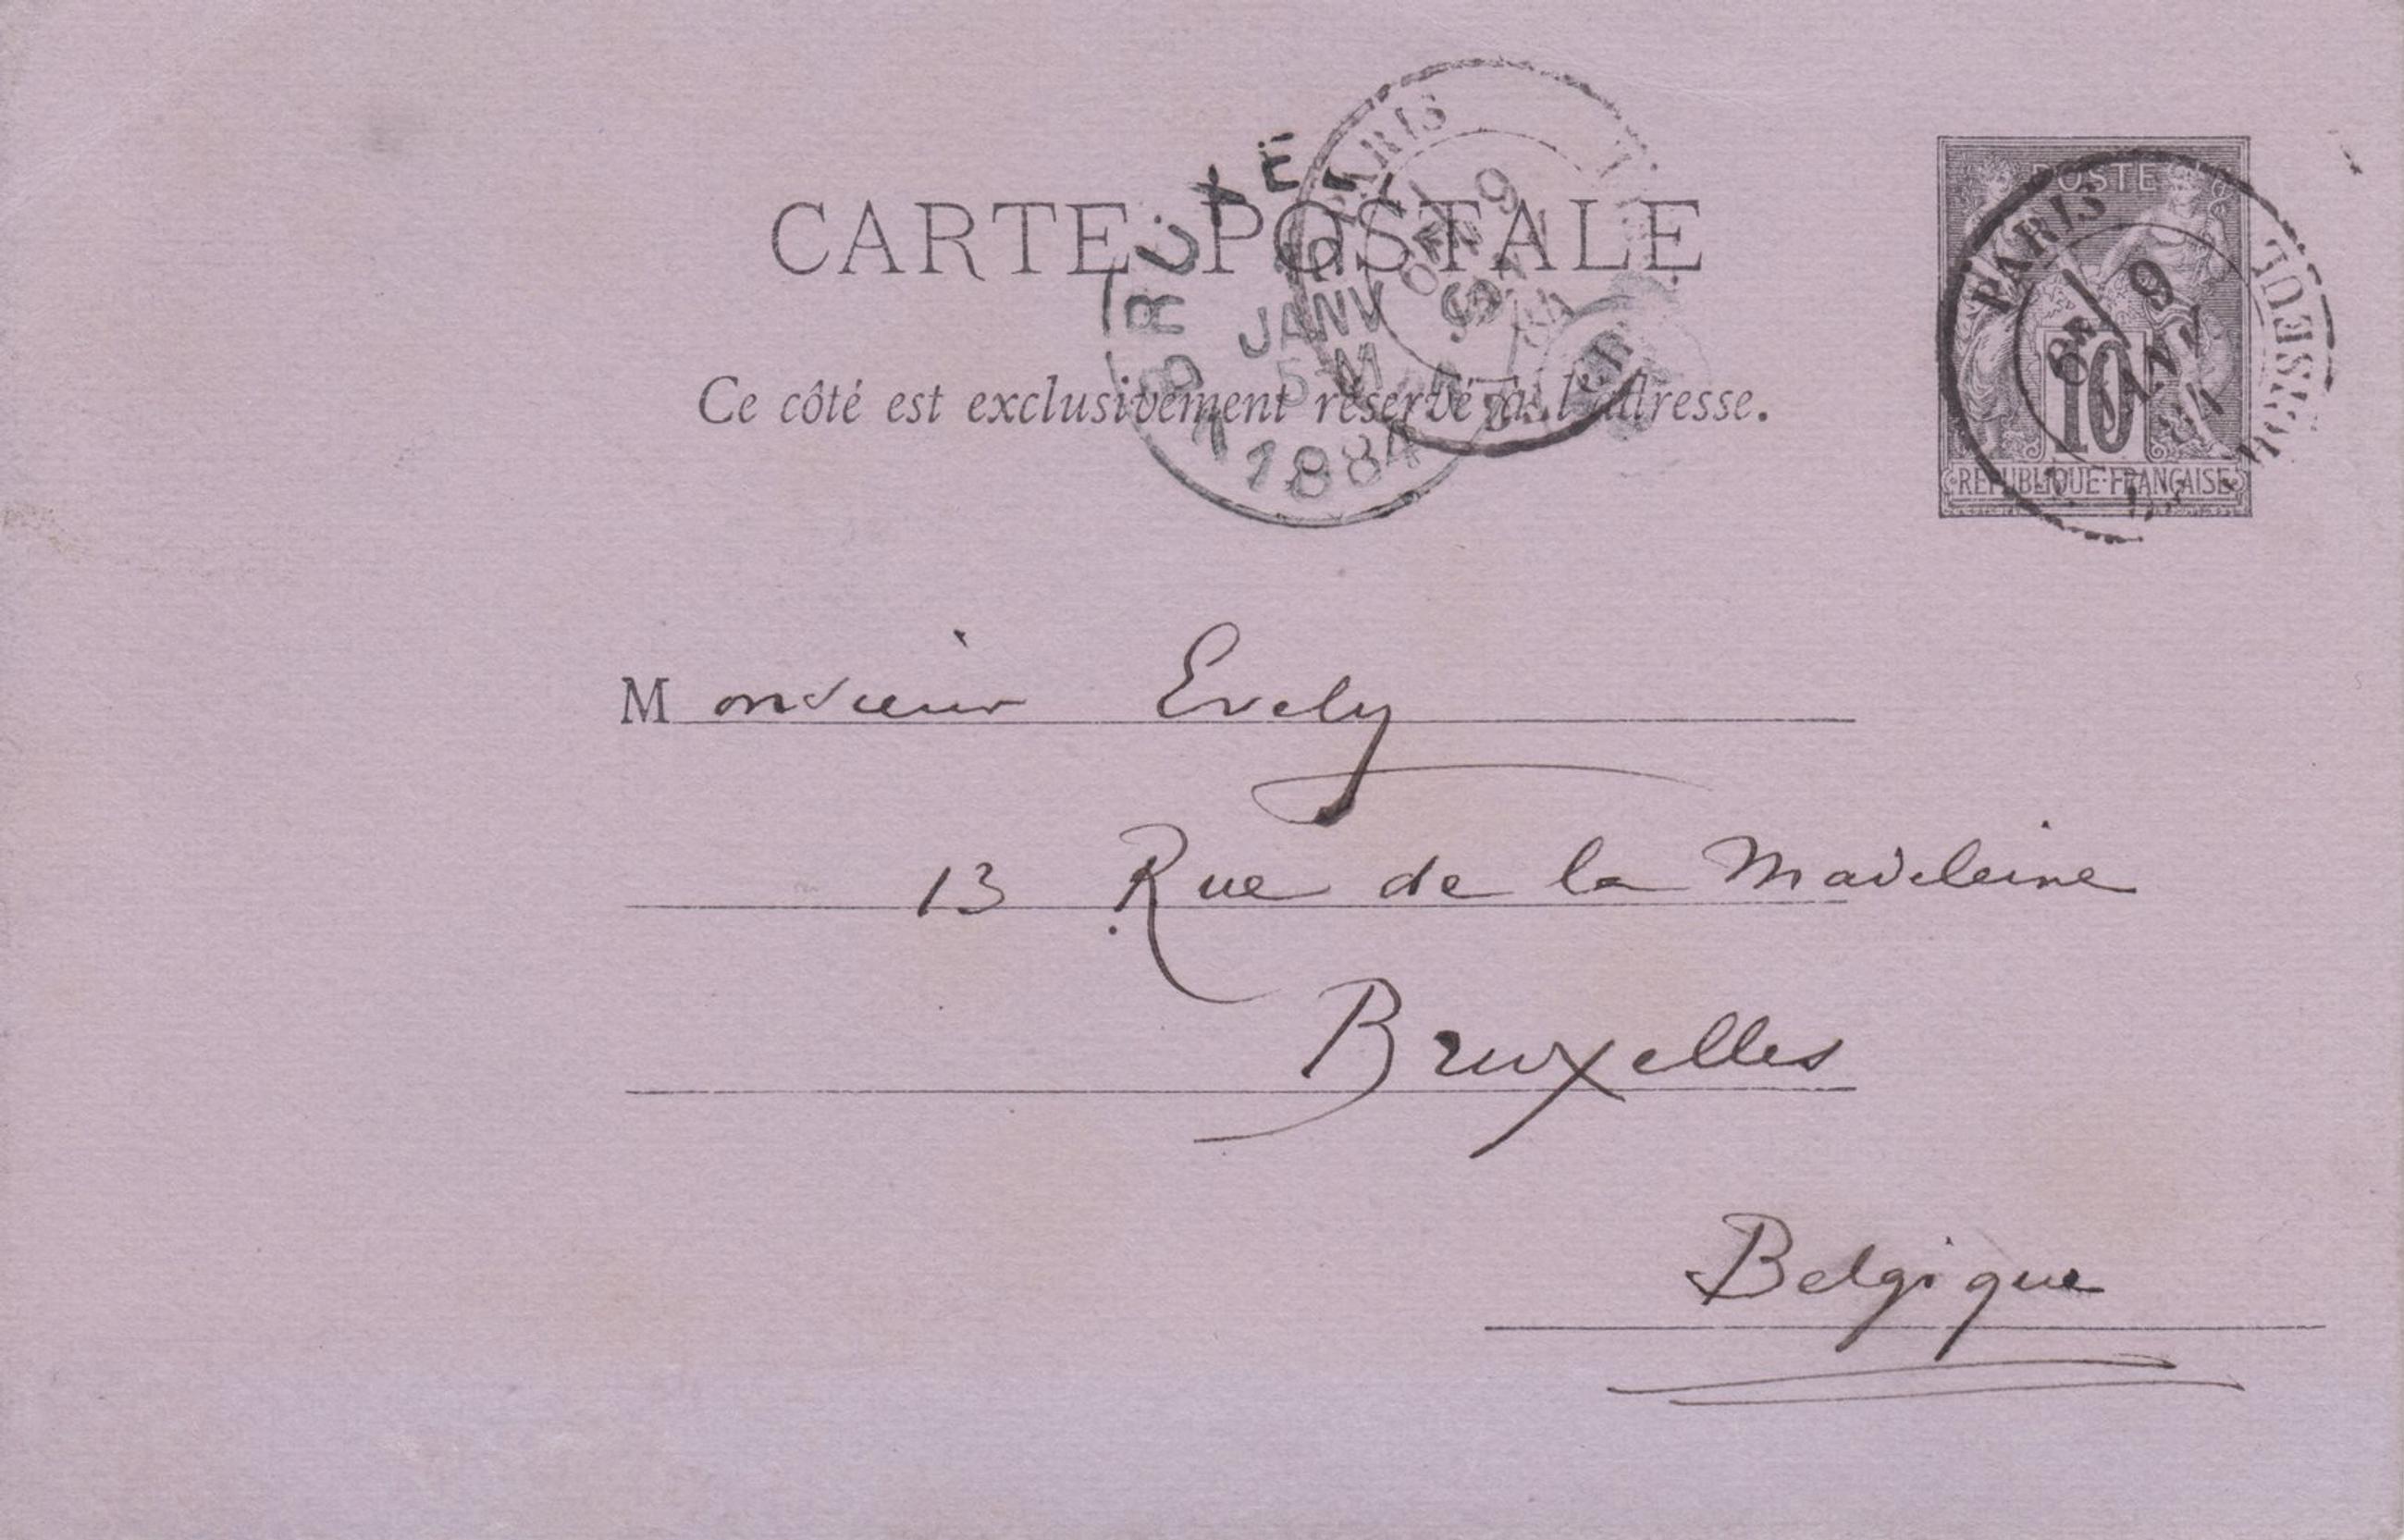 CARTE POSTALE
Ce côté est exclusivement réservé à l'adresse.
BRUXE
JANV
5-M
1884
PARIS
9
JANV
84
POSTE
10
RÉPUBLIQUE FRANÇAISE
PARIS
9
JANV
84
Monsieur Evely
13 Rue de la Madeleine
Bruxelles
Belgique